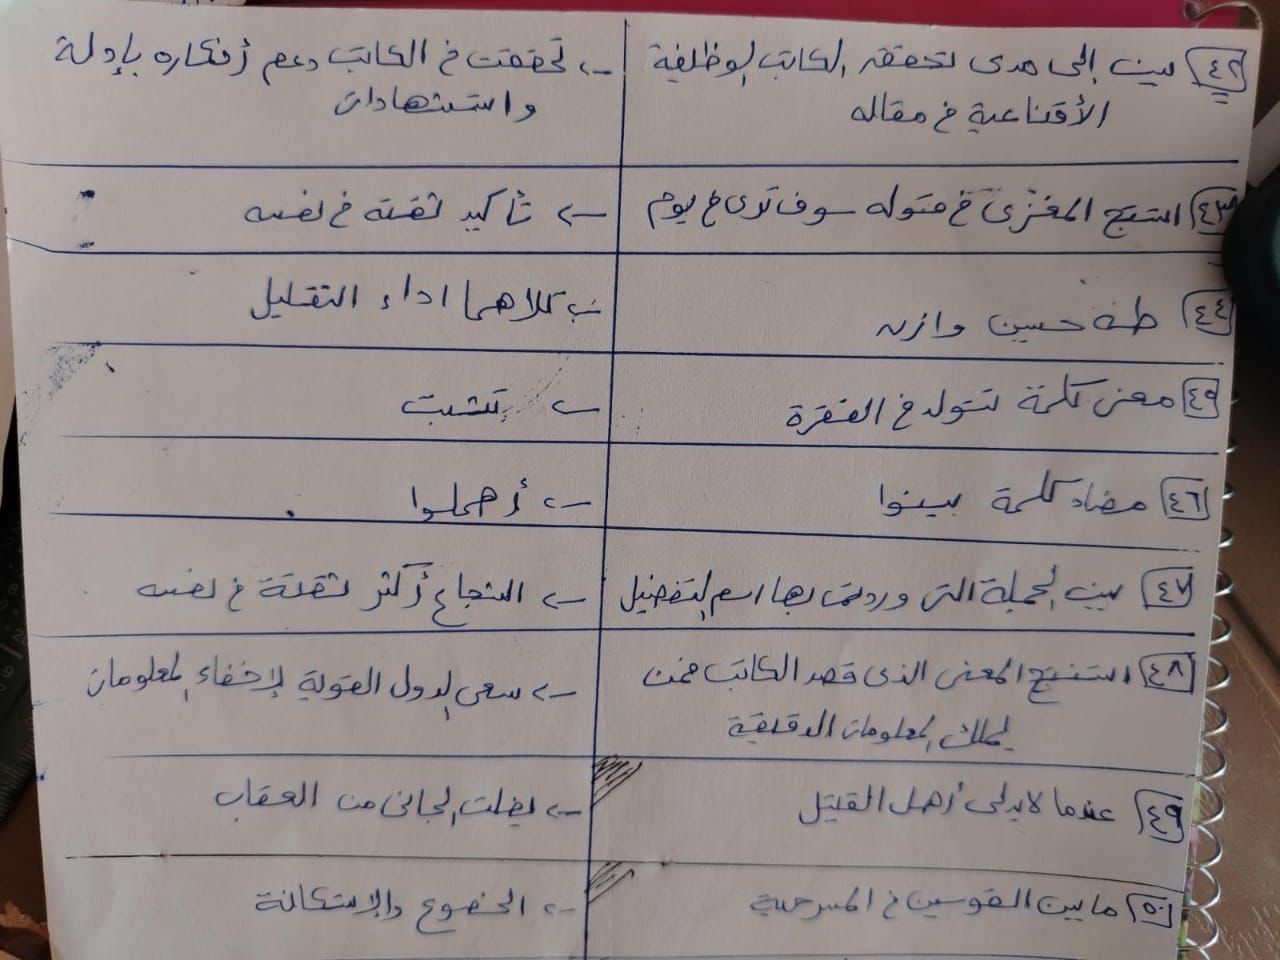 ٤٢ بين إلى مدى تحققه الكاتب الوظيفة
الأقناعية في مقاله
تحققت في الكاتب دعم أفكاره بإدلة
واستشهادات
٤٣ استنتج المغزى في قوله سوف ترى في يوم
تأكيد ثقته في نفسه
٤٤ طه حسين وازن
كلاهما اداء التقليل
٤٥ معنى كلمة تتولد في الفقرة
٤٦ مضاد كلمة بينوا
أهملوا
٤٧ بين الجملة التى وردت بها اسم التفضيل
الشجاع أكثر ثقتة في نفسه
٤٨ استنتج المعنى الذى قصد الكاتب ممن
يملك المعلومات الدقيقة
سعى الدول القوية لإخفاء المعلومات
٤٩ عندما لا يدلى أهل القتيل
يفلت الجانى من العقاب
٥٠ ما بين القوسين في المسرحية
الخضوع والإستكانة